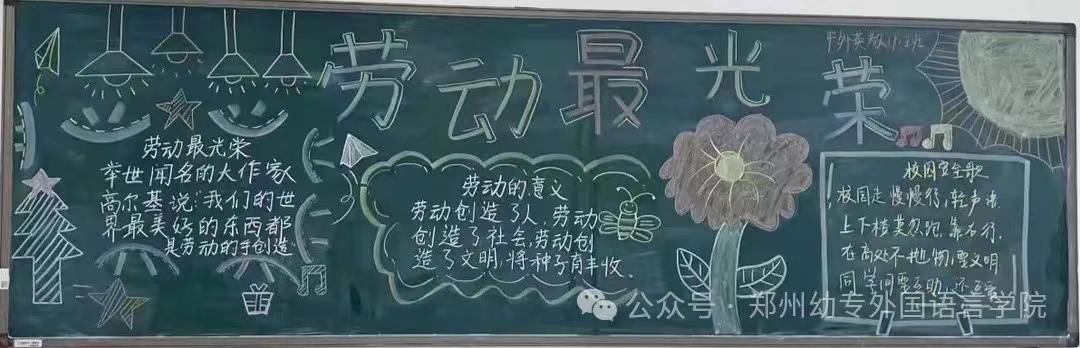 劳动最光荣
劳动最光荣
举世闻名的大作家
高尔基说:"我们的世
界最美好的东西都
是劳动的手创造
劳动的意义
劳动创造了人,劳动
创造了社会,劳动创
造了文明,将种子育丰收.
校园安全歌
校园走慢慢行,轻声语
上下楼莫忽跑,靠右行.
在高处不抛物,要文明
同学间要互助,
公众号·郑州幼专外国语言学院